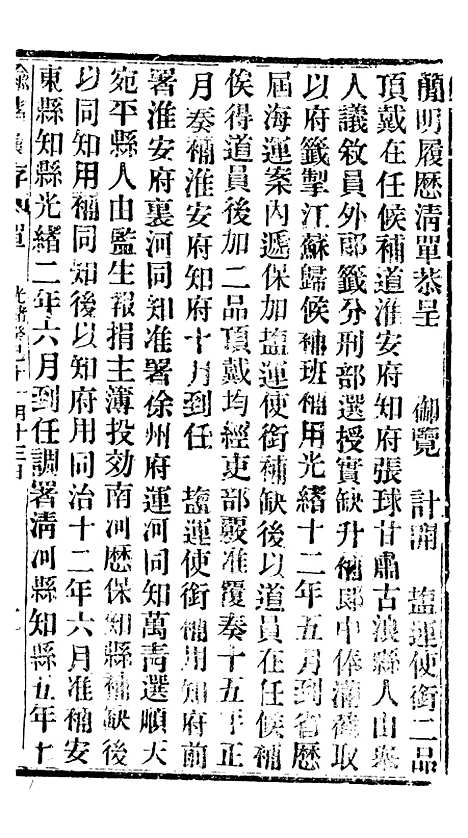 簡明履歷清單恭呈　御覽　計開　鹽運使銜二品
頂戴在任候補道淮安府知府張球甘肅古浪縣人由舉
人議敘員外郎籤分刑部選授實缺升補郎中俸滿截取
以府籤掣江蘇歸候補班補用光緒十二年五月到省歷
屆海運案內遞保加鹽運使銜補缺後以道員在任候補
俟得道員後加二品頂戴均經吏部覈准覆奏十五年正
月奏補淮安府知府十月到任　鹽運使銜補用知府前
署淮安府裏河同知准署徐州府運河同知萬青選順天
宛平縣人由監生報捐主簿投効南河歷保知縣補缺後
以同知用補同知後以知府用同治十二年六月准補安
東縣知縣光緒二年六月到任調署清河縣知縣五年十
諭摺彙存　單　光緒　月十三日